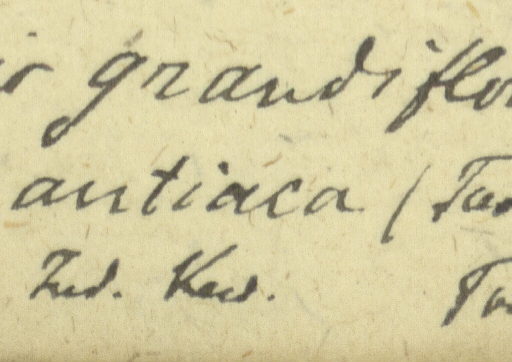 grandiflo
antiaca (Tur
Ind. Kew.